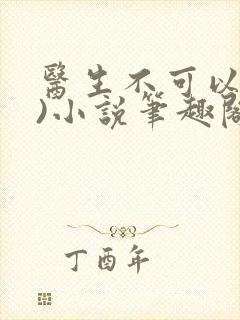 醫生不可以
)小說筆趣閣
丁酉年